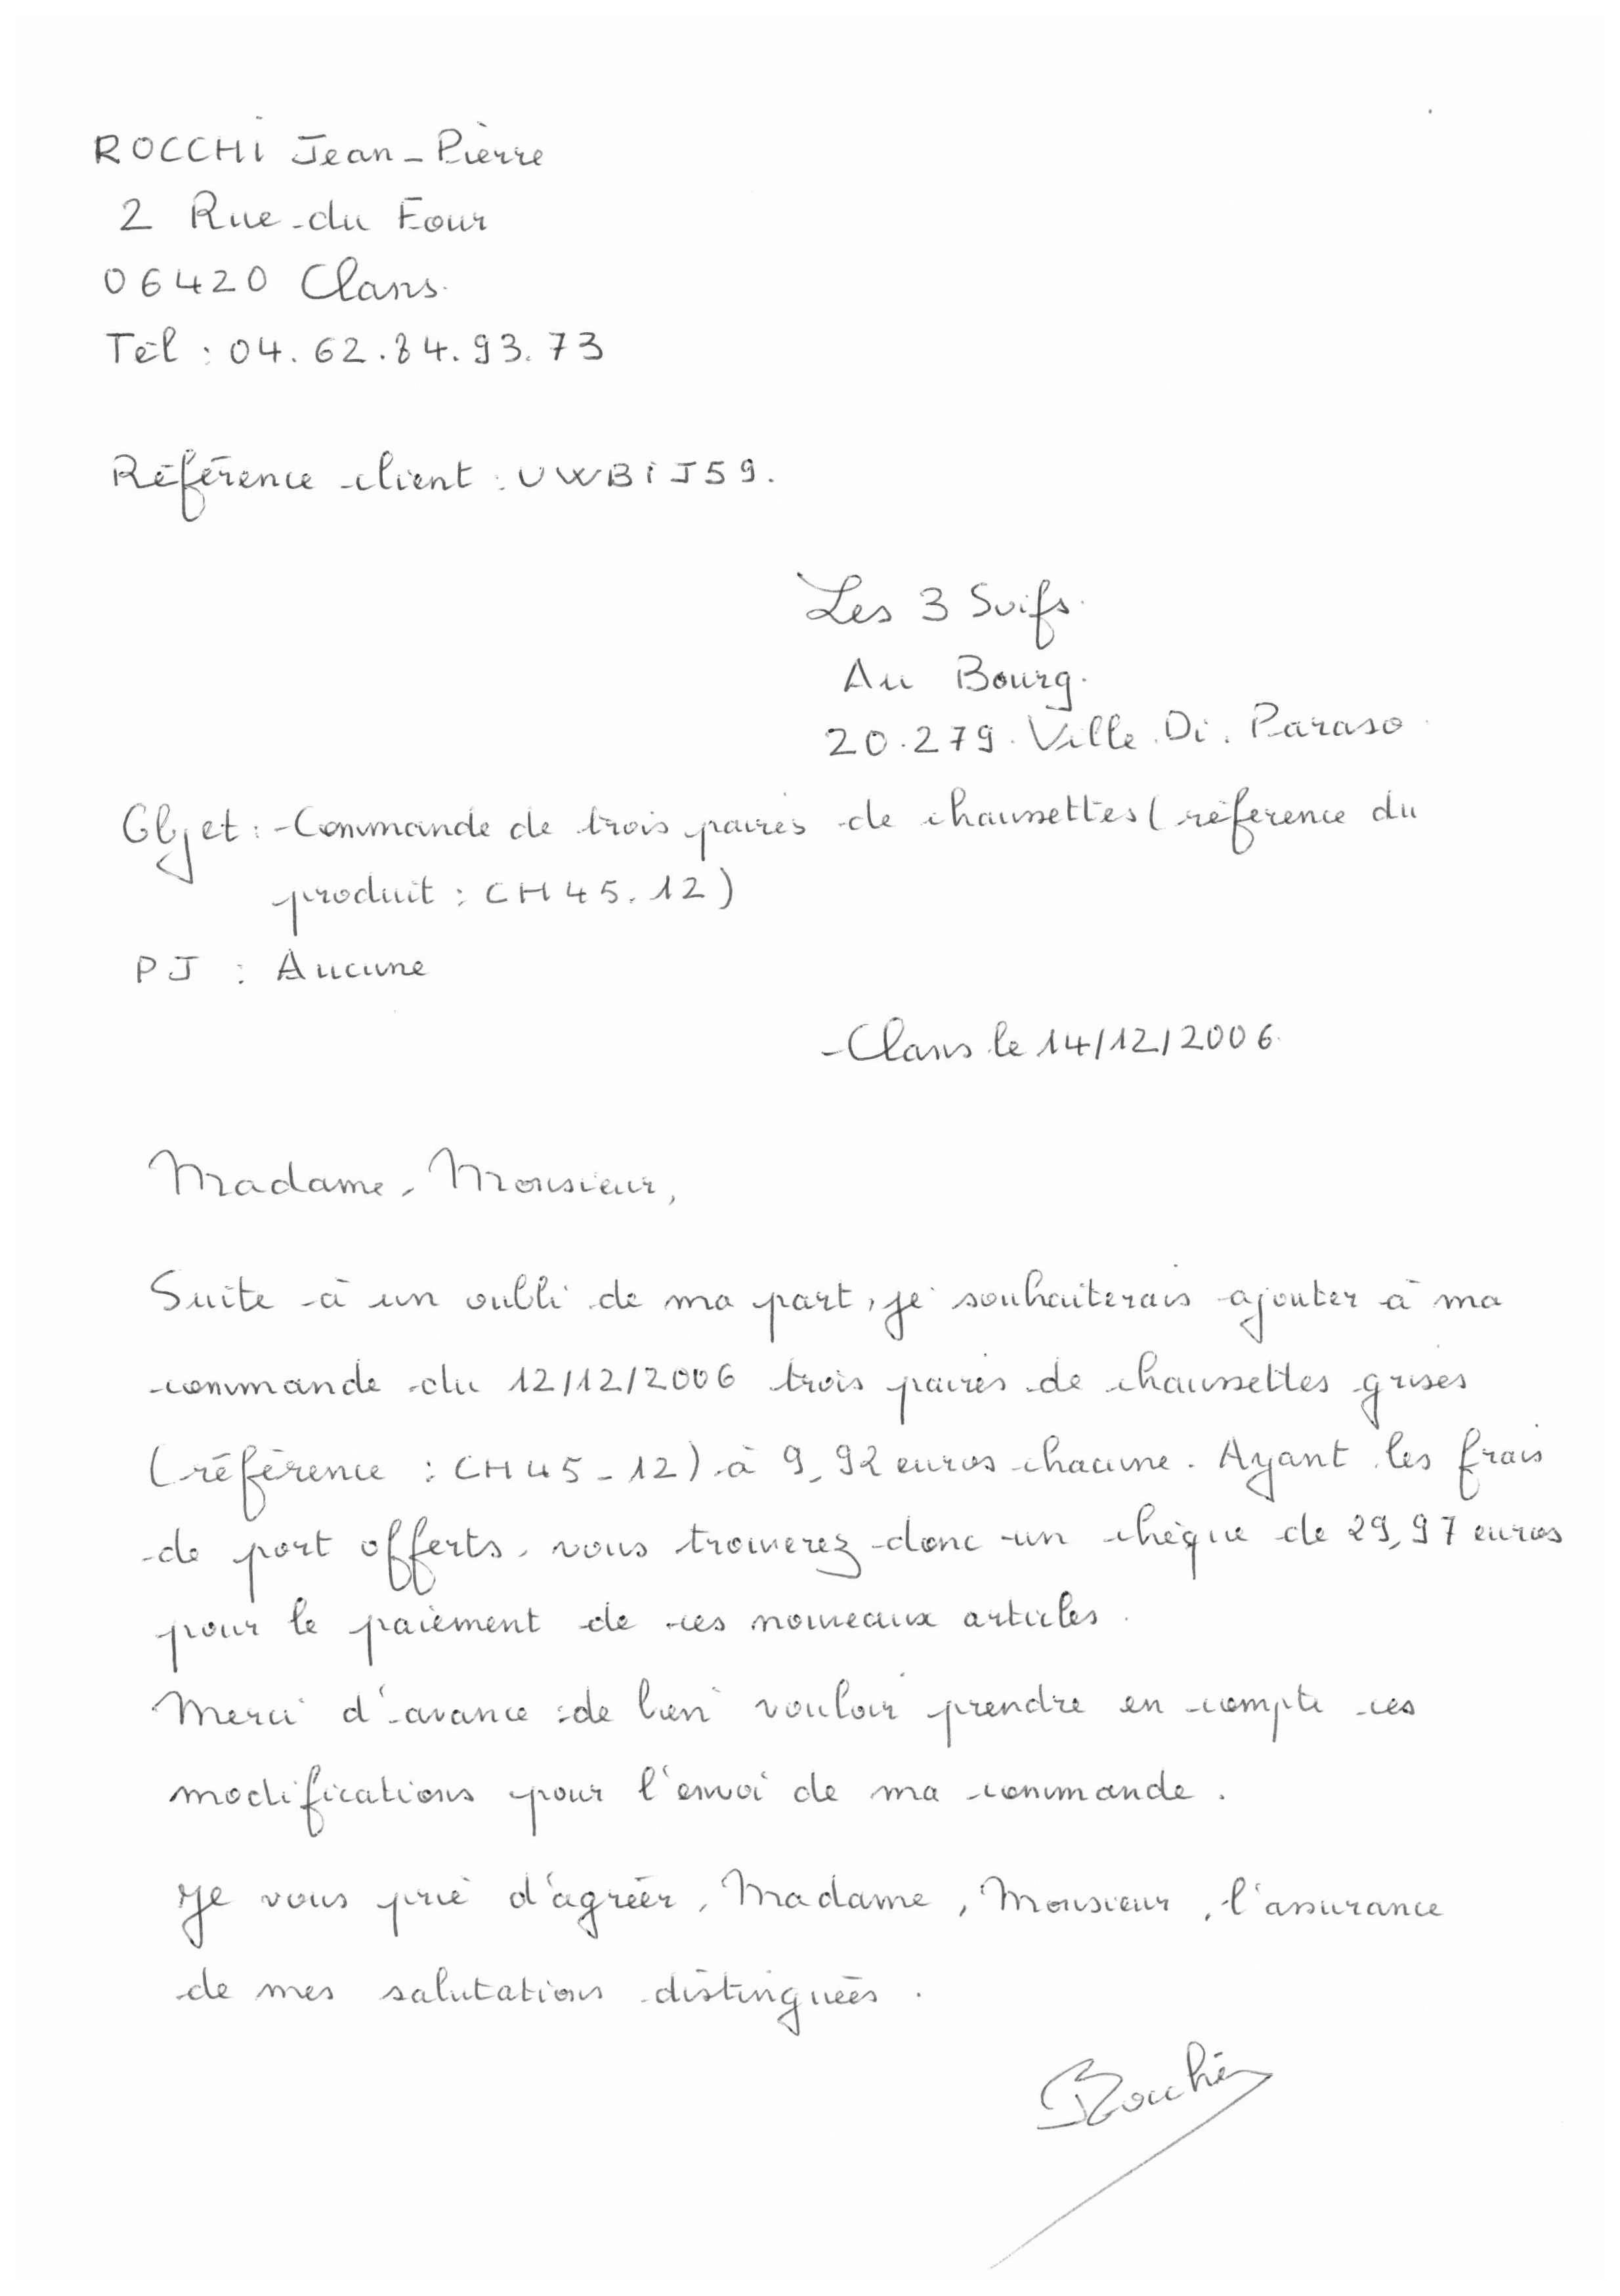 ROCCHI Jean-Pierre
2 Rue du Four
06420 Clans.
Tél : 04.62.84.93.73
Référence client : UWBIJ59.
Les 3 Suifs.
Au Bourg.
20.279. Ville. Di. Paraso.
Objet : Commande de trois paires de chaussettes (référence du
produit : CH45.12)
PJ : Aucune
Clans le 14/12/2006.
Madame, Monsieur,
Suite à un oubli de ma part, je souhaiterais ajouter à ma
commande du 12/12/2006 trois paires de chaussettes grises
(référence : CH45-12) à 9,92 euros chacune. Ayant les frais
de port offerts, vous trouverez donc un chèque de 29,97 euros
pour le paiement de ces nouveaux articles.
Merci d'avance de bien vouloir prendre en compte ces
modifications pour l'envoi de ma commande.
Je vous prie d'agréer, Madame, Monsieur, l'assurance
de mes salutations distinguées.
Rocchi